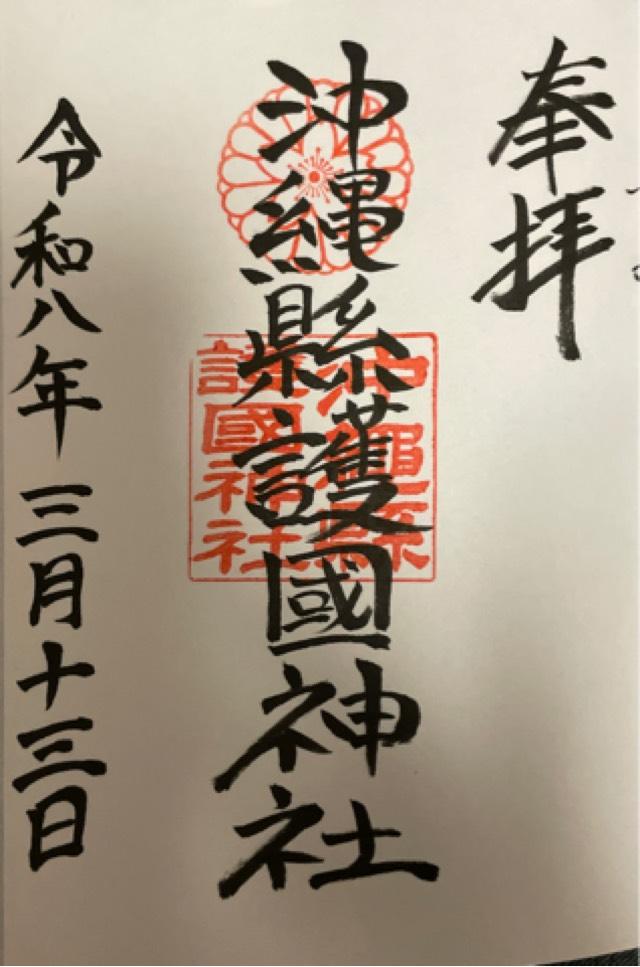 奉拝
沖縄縣護國神社
沖繩縣
護國神社
令和八年三月十三日